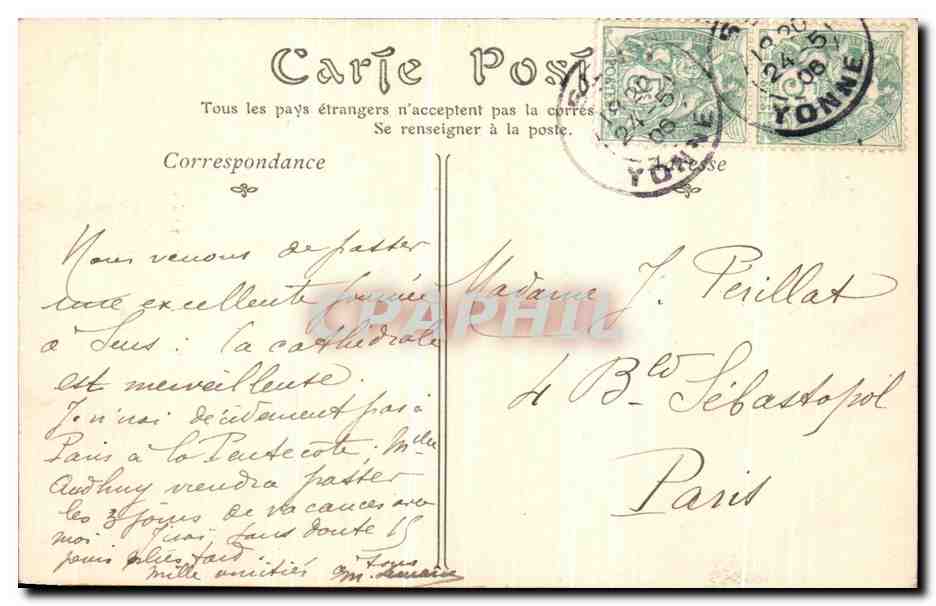 Carte Post
Tous les pays étrangers n'acceptent pas la corres
Se renseigner à la poste.
Correspondance
resse
19 30
24 - 5
06
YONNE
19 30
24 - 5
06
YONNE
Nous venons de passer
une excellente journée
à Sens : la cathédrale
est merveilleuse.
Je n'irai décidément pas à
Paris à la Pentecôte ; Melle
viendra passer
les 3 jours de vacances avec
moi J'irai sans doute 15
jours plus tard.
Mille amitiés à tous
Madame J. Périllat
4 Bld Sébastopol
Paris
CPAPHIL